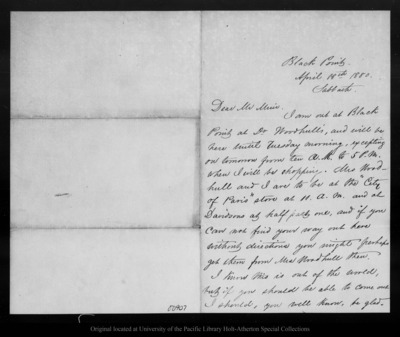 Black Point,
April 18th 1880.
Sabbath.
Dear Mr Muir.
I am out at Black
Point at Dr Woodhull's, and will be
here until Tuesday morning, excepting
on tomorrow from ten A.M. to 5 P.M.
when I will be shopping. Mrs Wood-
hull and I are to be at the "City
of Paris" store at 11. A. M. and at
Davidsons at half past one, and if you
can not find your way out here
without directions you might perhaps
get them from Mrs Woodhull then.
I know this is out of the world,
but if you should be able to come out
I should, you well know, be glad.
Original located at University of the Pacific Library Holt-Atherton Special Collections